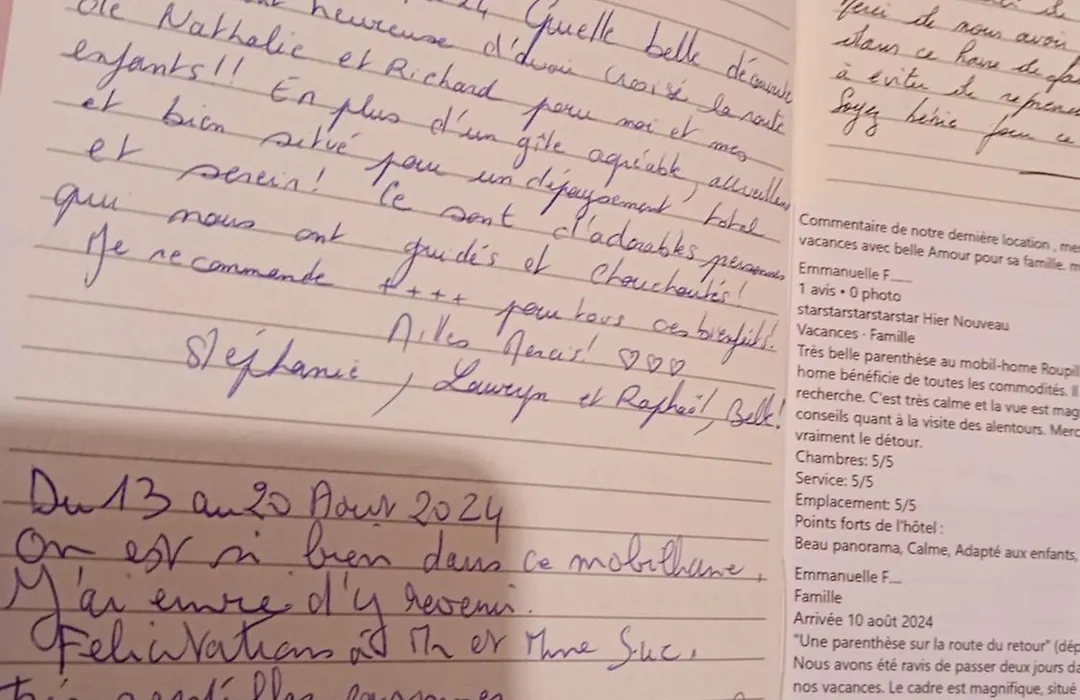 24 Quelle belle découverte
heureuse d'avoir croisé la route
de Nathalie et Richard pour moi et mes
enfants!! En plus d'un gîte agréable, accueillant
et bien situé pour un dépaysement total
et serein! Ce sont d'adorables personnes
qui nous ont guidés et chouchoutés!
Je recommande ++++ pour tous ces bienfaits!
Milles Mercis! ♡♡♡
Stéphanie, Lauryn et Raphaël, Bell!
Du 13 au 20 Aout 2024
On est si bien dans ce mobilhome,
J'ai envie d'y revenir.
Felicitations à Mr et Mme Suc.
Merci de nous avoir
dans ce havre de
à éviter de
Soyez bénie pour ce
Commentaire de notre dernière location , me
vacances avec belle Amour pour sa famille. m
Emmanuelle F___
1 avis • 0 photo
starstarstarstarstar Hier Nouveau
Vacances - Famille
Très belle parenthèse au mobil-home Roupil
home bénéficie de toutes les commodités. Il
recherche. C'est très calme et la vue est mag
conseils quant à la visite des alentours. Merc
vraiment le détour.
Chambres: 5/5
Service: 5/5
Emplacement: 5/5
Points forts de l'hôtel :
Beau panorama, Calme, Adapté aux enfants,
Emmanuelle F__
Famille
Arrivée 10 août 2024
"Une parenthèse sur la route du retour" (dép
Nous avons été ravis de passer deux jours da
nos vacances. Le cadre est magnifique, situé